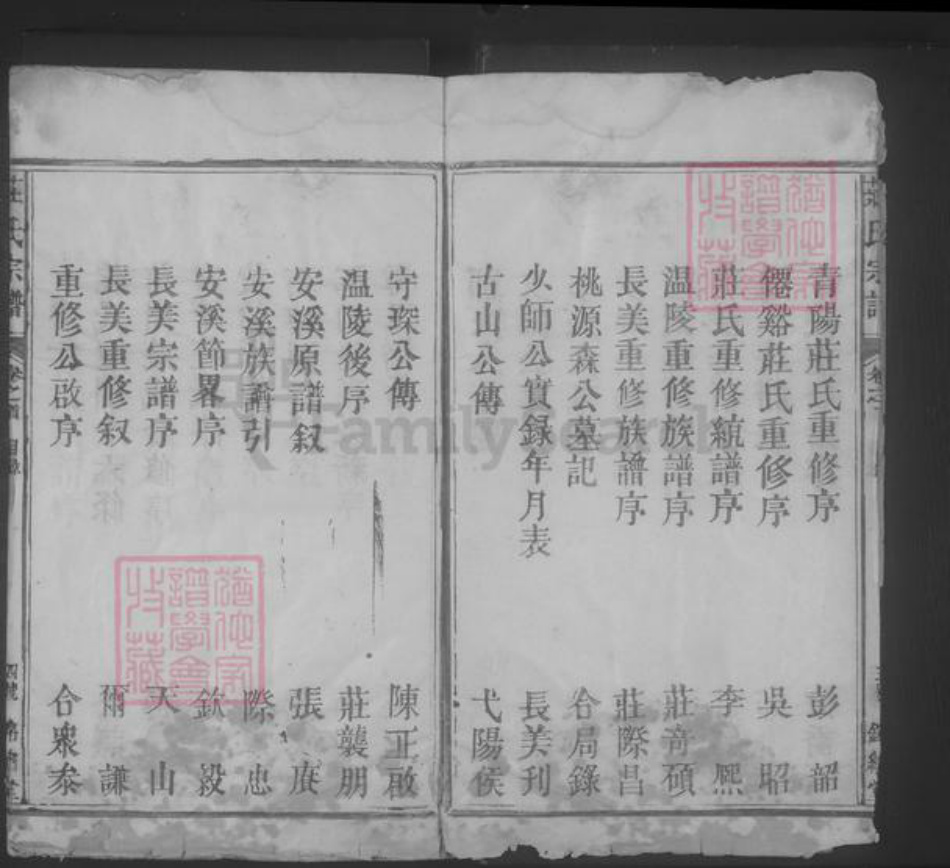 莊氏宗譜
青陽莊氏重修序 彭韶
僊谿莊氏重修序 吳昭
莊氏重修統譜序 李熈
温陵重修族譜序 莊奇碩
長美重修族譜序 莊際昌
桃源森公墓記 合局錄
少師公實録年月表 長美刋
古山公傳 弋陽侯
守琛公傳 陳正啟
温陵後序 莊襲朋
安溪原譜叙 張賡
安溪族譜引 際忠
安溪節畧序 欽毅
長美宗譜序 天山
長美重修叙 爾謙
重修公啟序 合衆泰
莊氏宗譜
卷之首
目錄
四號
FamilySearch